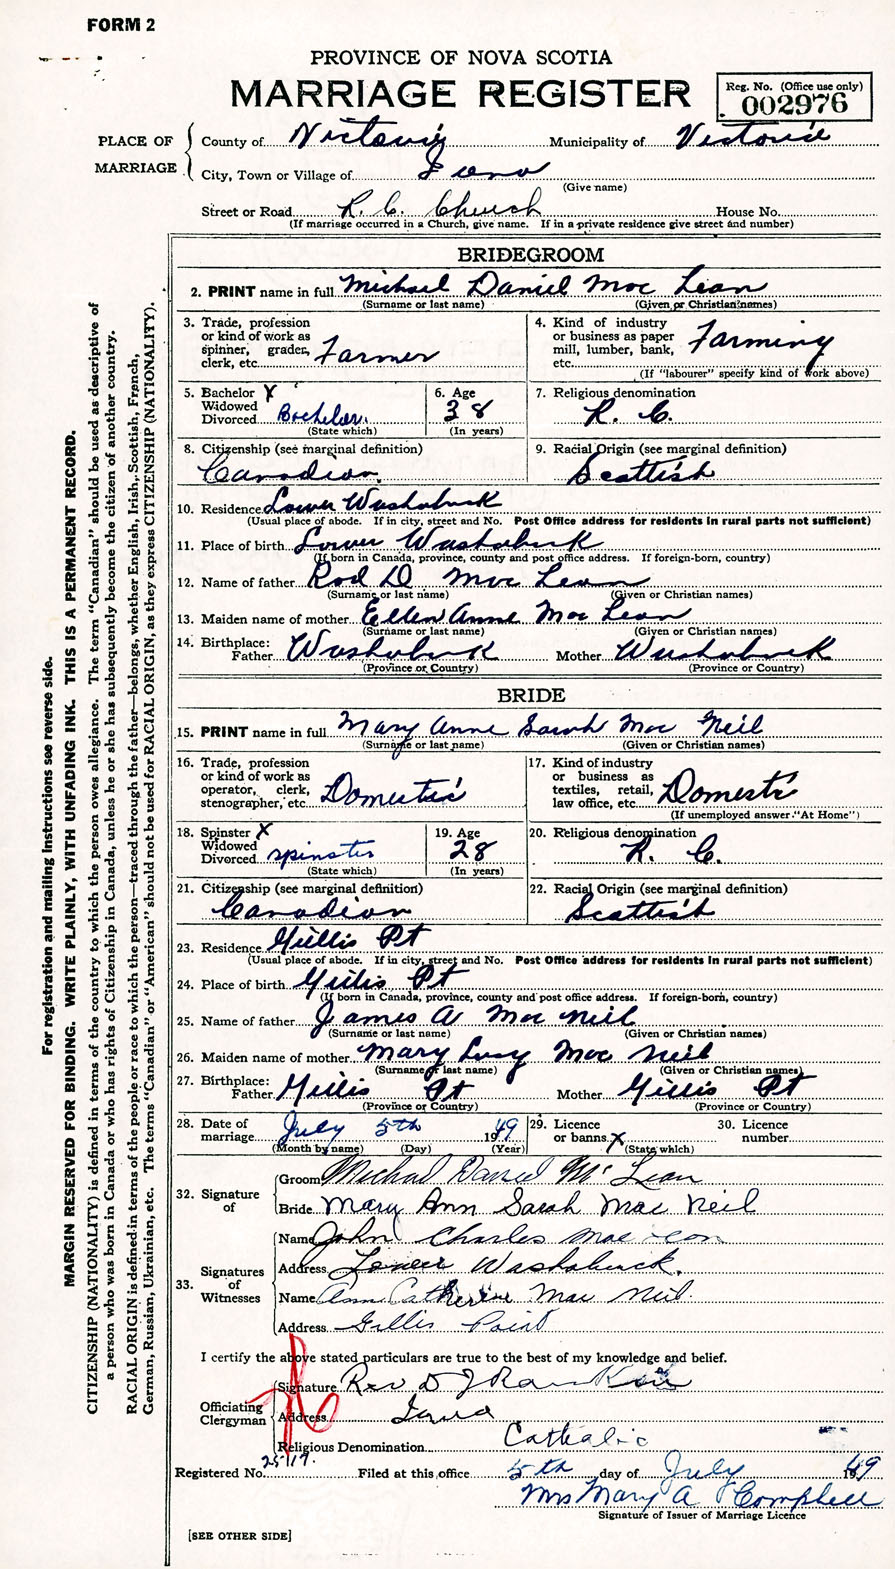 FORM 2
PROVINCE OF NOVA SCOTIA
MARRIAGE REGISTER
Reg. No. (Office use only)
002976
PLACE OF MARRIAGE
County of Victoria Municipality of Victoria
City, Town or Village of Iona
(Give name)
Street or Road R. C. Church House No.
(If marriage occurred in a Church, give name. If in a private residence give street and number)
BRIDEGROOM
2. PRINT name in full Michael Daniel Mac Lean
(Surname or last name) (Given or Christian names)
3. Trade, profession or kind of work as spinner, grader, clerk, etc. Farmer
4. Kind of industry or business as paper mill, lumber, bank, etc. Farming
(If "labourer" specify kind of work above)
5. Bachelor X Widowed Divorced Bachelor
(State which)
6. Age 38
(In years)
7. Religious denomination
R. C.
8. Citizenship (see marginal definition)
Canadian
9. Racial Origin (see marginal definition)
Scottish
10. Residence Lower Washabuck
(Usual place of abode. If in city, street and No. Post Office address for residents in rural parts not sufficient)
11. Place of birth Lower Washabuck
(If born in Canada, province, county and post office address. If foreign-born, country)
12. Name of father Rod D Mac Lean
(Surname or last name) (Given or Christian names)
13. Maiden name of mother Ellen Anne Mac Lean
(Surname or last name) (Given or Christian names)
14. Birthplace:
Father Washabuck Mother Washabuck
(Province or Country) (Province or Country)
BRIDE
15. PRINT name in full Mary Anne Sarah Mac Neil
(Surname or last name) (Given or Christian names)
16. Trade, profession or kind of work as operator, clerk, stenographer, etc. Domestic
17. Kind of industry or business as textiles, retail, law office, etc. Domestic
(If unemployed answer "At Home")
18. Spinster X Widowed Divorced spinster
(State which)
19. Age 28
(In years)
20. Religious denomination
R. C.
21. Citizenship (see marginal definition)
Canadian
22. Racial Origin (see marginal definition)
Scottish
23. Residence Gillis Pt
(Usual place of abode. If in city, street and No. Post Office address for residents in rural parts not sufficient)
24. Place of birth Gillis Pt
(If born in Canada, province, county and post office address. If foreign-born, country)
25. Name of father James A Mac Neil
(Surname or last name) (Given or Christian names)
26. Maiden name of mother Mary Lucy Mac Neil
(Surname or last name) (Given or Christian names)
27. Birthplace:
Father Gillis Pt Mother Gillis Pt
(Province or Country) (Province or Country)
28. Date of marriage July 5th 1949
(Month by name) (Day) (Year)
29. Licence or banns X
(State which)
30. Licence number
32. Signature of
Groom Michael Daniel Mc Lean
Bride Mary Ann Sarah Mac Neil
33. Signatures of Witnesses
Name John Charles Mac
Address Lower Washabuck.
Name Ann Catherine Mac Neil
Address Gillis Point
I certify the above stated particulars are true to the best of my knowledge and belief.
Officiating Clergyman
Signature Rev D J Rankin
Address Iona
Religious Denomination Catholic
Registered No. Filed at this office 5th day of July 1949
Mrs Mary A Campbell
Signature of Issuer of Marriage Licence
[SEE OTHER SIDE]
For registration and mailing instructions see reverse side.
MARGIN RESERVED FOR BINDING. WRITE PLAINLY, WITH UNFADING INK. THIS IS A PERMANENT RECORD.
CITIZENSHIP (NATIONALITY) is defined in terms of the country to which the person owes allegiance. The term "Canadian" should be used as descriptive of
a person who was born in Canada or who has rights of Citizenship in Canada, unless he or she has subsequently become the citizen of another country.
RACIAL ORIGIN is defined in terms of the people or race to which the person—traced through the father—belongs, whether English, Irish, Scottish, French,
German, Russian, Ukrainian, etc. The terms "Canadian" or "American" should not be used for RACIAL ORIGIN, as they express CITIZENSHIP (NATIONALITY).